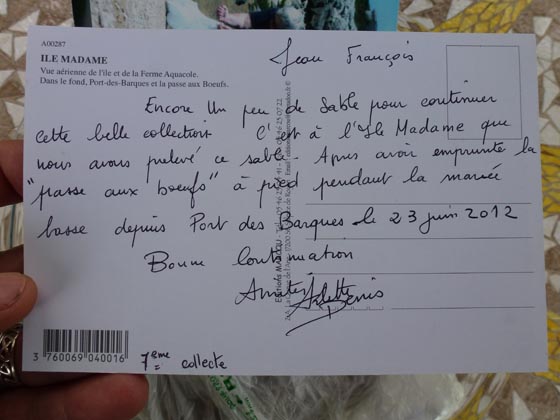 A00287
ILE MADAME
Vue aérienne de l'île et de la Ferme Aquacole.
Dans le fond, Port-des-Barques et la passe aux Boeufs.
Jean François
Encore Un peu de Sable pour continuer
cette belle collection C'est à l'Ile Madame que
nous avons prelevé ce sable. Apres avoir emprunté la
"passe aux boeufs" à pied pendant la marée
basse depuis Port des Barques le 23 juin 2012
Bonne Continuation
Amitiés Arlette
Denis
3 760069 040016
7eme collecte